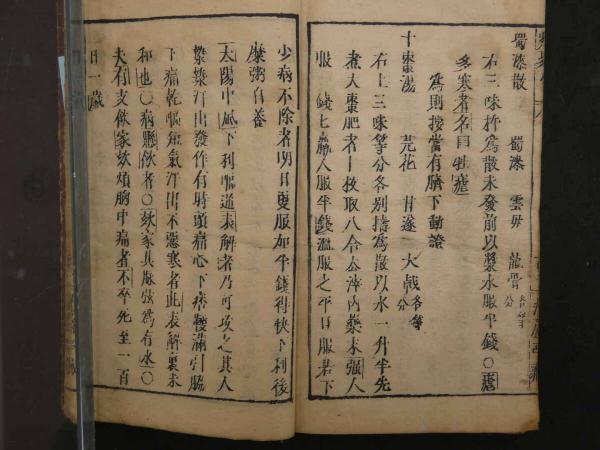 蜀漆散 蜀漆 雲母 龍骨各等分
右三味杵為散未發前以漿水服半錢○瘧
多寒者名曰牡瘧
為則按當有臍下動證
十棗湯 芫花 甘遂 大戟各等分
右上三味等分各別擣為散以水一升半先
煮大棗肥者十枚取八合去滓內藥末强人
服一錢匕羸人服半錢溫服之平旦服若下
少病不除者明日更服加半錢得快下利後
糜粥自養
太陽中風下利嘔逆表解者乃可攻之其人
漐漐汗出發作有時頭痛心下痞鞕滿引脇
下痛乾嘔短氣汗出不惡寒者此表解裏未
和也○病懸飲者○欬家其脉弦為有水○
夫有支飲家欬煩胸中痛者不卒死至一百
日一歲